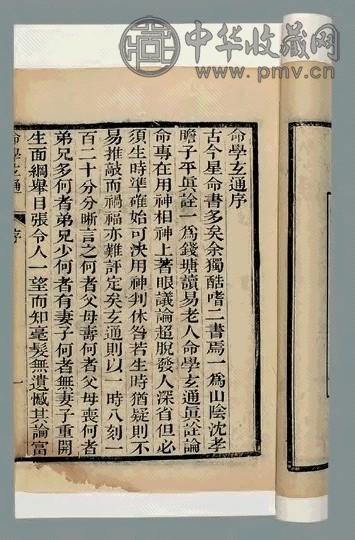 中华收藏网
www.pmv.cn
命學玄通序
古今星命書多矣余獨酷嗜二書焉一爲山陰沈孝
瞻子平眞詮一爲錢塘讀易老人命學玄通眞詮論
命專在用神相神上著眼議論超脫發人深省但必
須生時準確始可決用神判休咎若生時猶疑則不
易推敲而禍福亦難評定矣玄通則以一時八刻一
百二十分分晰言之何者父母壽何者父母喪何者
弟兄多何者弟兄少何者有妻子何者無妻子重開
生面綱舉目張令人一望而知毫髮無遺憾其論富
命學玄通
序
一